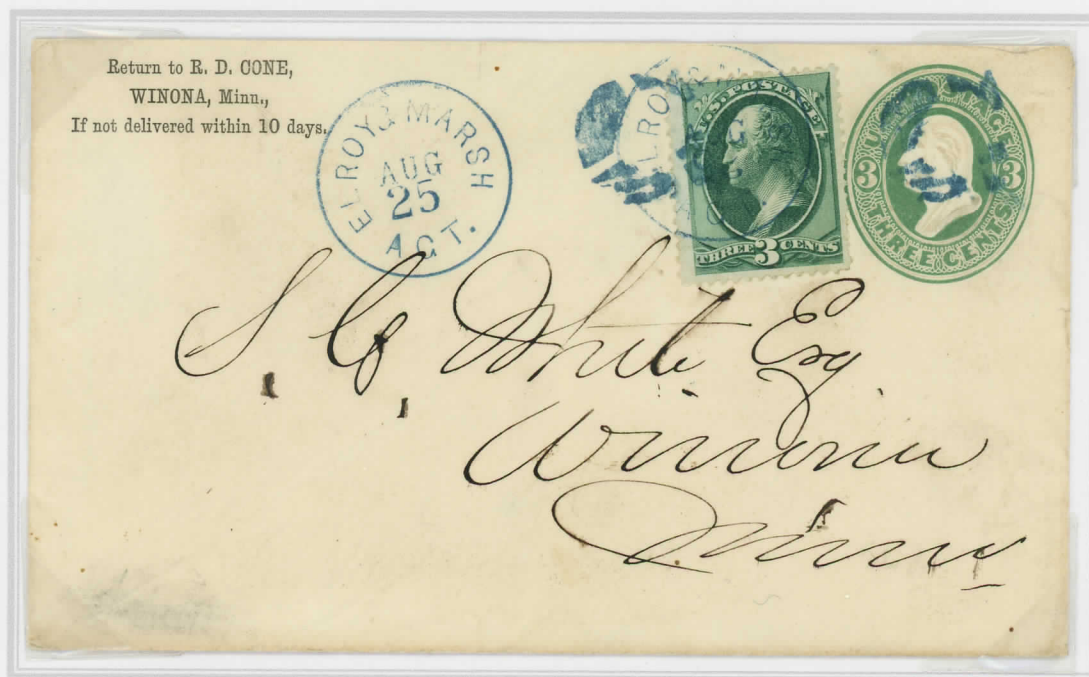 Return to R. D. CONE,
WINONA, Minn.,
If not delivered within 10 days.
ELROY & MARSH
AUG
25
AGT.
ELROY
U.S. POSTAGE
THREE 3 CENTS
U.S. POSTAGE
3 3
THREE CENTS
S. G. White Esq
Winona
Minn